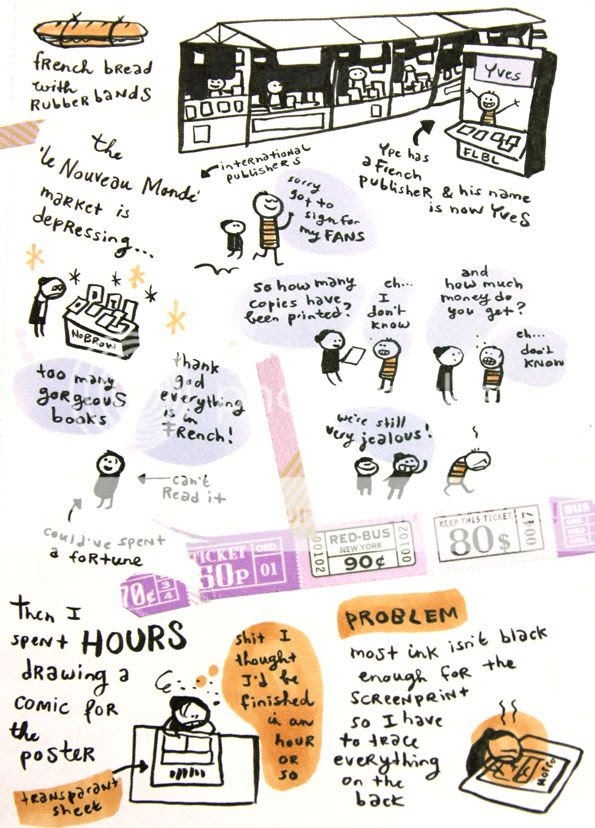 French bread
with
Rubber bands
Yves
FLBL
the
'le Nouveau Monde'
market is
depressing...
international
publishers
Ype has
a French
publisher & his name
is now Yves
sorry
got to
sign for
my FANS
NoBrow
too many
gorgeous
books
thank
god
everything
is in
French!
can't
Read it
could've spent
a fortune
so how many
copies have
been printed?
eh...
I
don't
know
and
how much
money do
you get?
eh...
don't
know
we're still
very jealous!
70¢
3/4
TICKET
50p
ORD
01
00102
RED-BUS
NEW YORK
90¢
00102
KEEP THIS TICKET
80$
0047
BUS
then I
spent HOURS
drawing a
comic for
the
poster
transparant
sheet
shit I
thought
I'd be
finished
in an
hour
or
so
PROBLEM
most ink isn't black
enough for the
screenprint
so I have
to trace
everything
on the
back